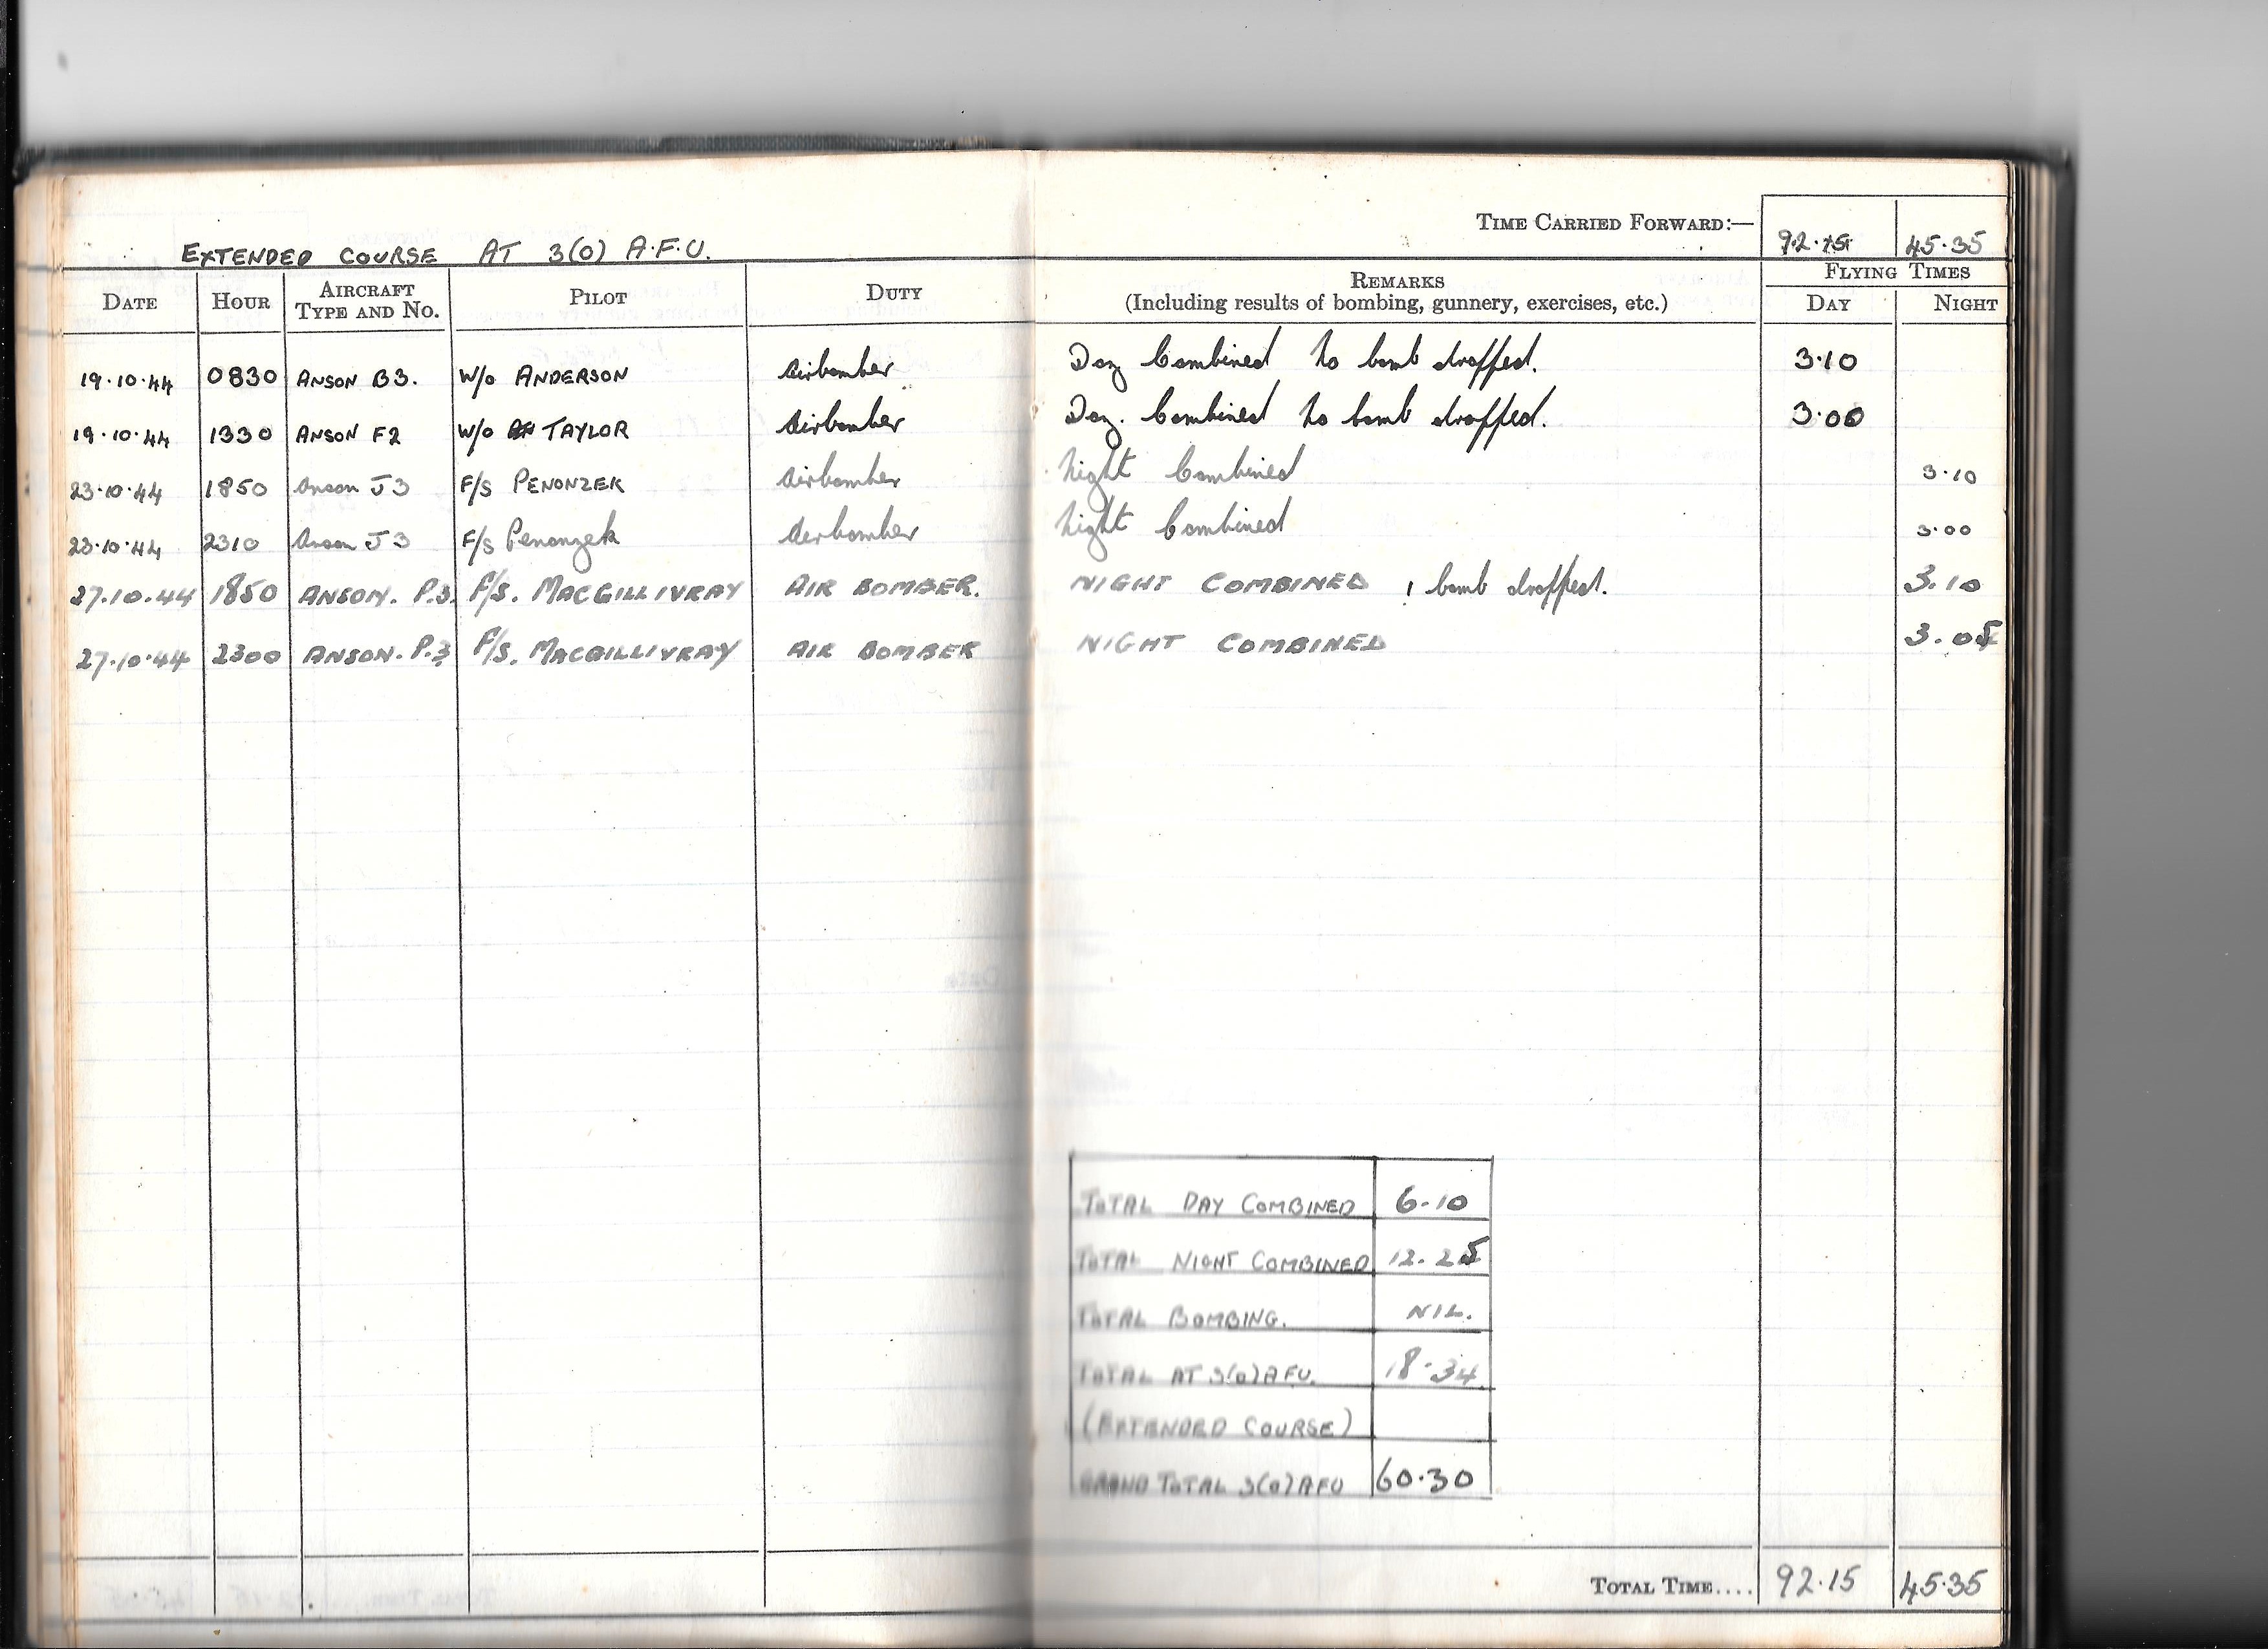 EXTENDED COURSE AT 3(O) A.F.U.
TIME CARRIED FORWARD:— 92.15 45.35
DATE HOUR AIRCRAFT TYPE AND NO. PILOT DUTY REMARKS (Including results of bombing, gunnery, exercises, etc.) FLYING TIMES DAY NIGHT
19.10.44 0830 ANSON B3. W/O ANDERSON Airbomber Day Combined No bomb dropped. 3.10
19.10.44 1330 ANSON F2 W/O TAYLOR Airbomber Day. Combined No bomb dropped. 3.00
23.10.44 1850 Anson J3 F/S PENONZEK Airbomber Night Combined 3.10
23.10.44 2310 Anson J3 F/S Penonzek Airbomber Night Combined 3.00
27.10.44 1850 ANSON. P.3. F/S. MACGILLIVRAY AIR BOMBER. NIGHT COMBINED 1 bomb dropped. 3.10
27.10.44 2300 ANSON. P.3 F/S. MACGILLIVRAY AIR BOMBER NIGHT COMBINED 3.05
TOTAL DAY COMBINED 6.10
TOTAL NIGHT COMBINED 12.25
TOTAL BOMBING. NIL.
TOTAL AT 3(O)AFU. 18.34
(EXTENDED COURSE)
GRAND TOTAL 3(O)AFU 60.30
TOTAL TIME.... 92.15 45.35